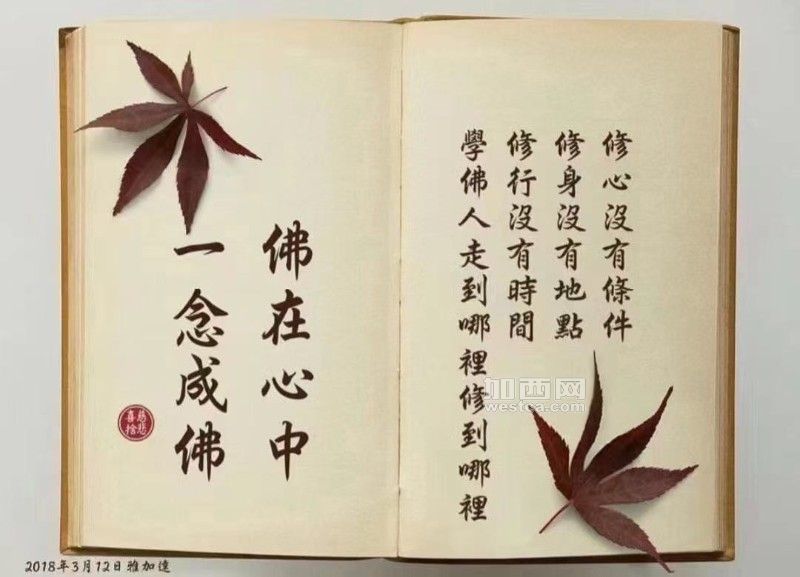 修心沒有條件
修身沒有地點
修行沒有時間
學佛人走到哪裡修到哪裡
佛在心中
一念成佛
慈悲
喜捨
加西网
westca.com
2018年3月12日雅加達